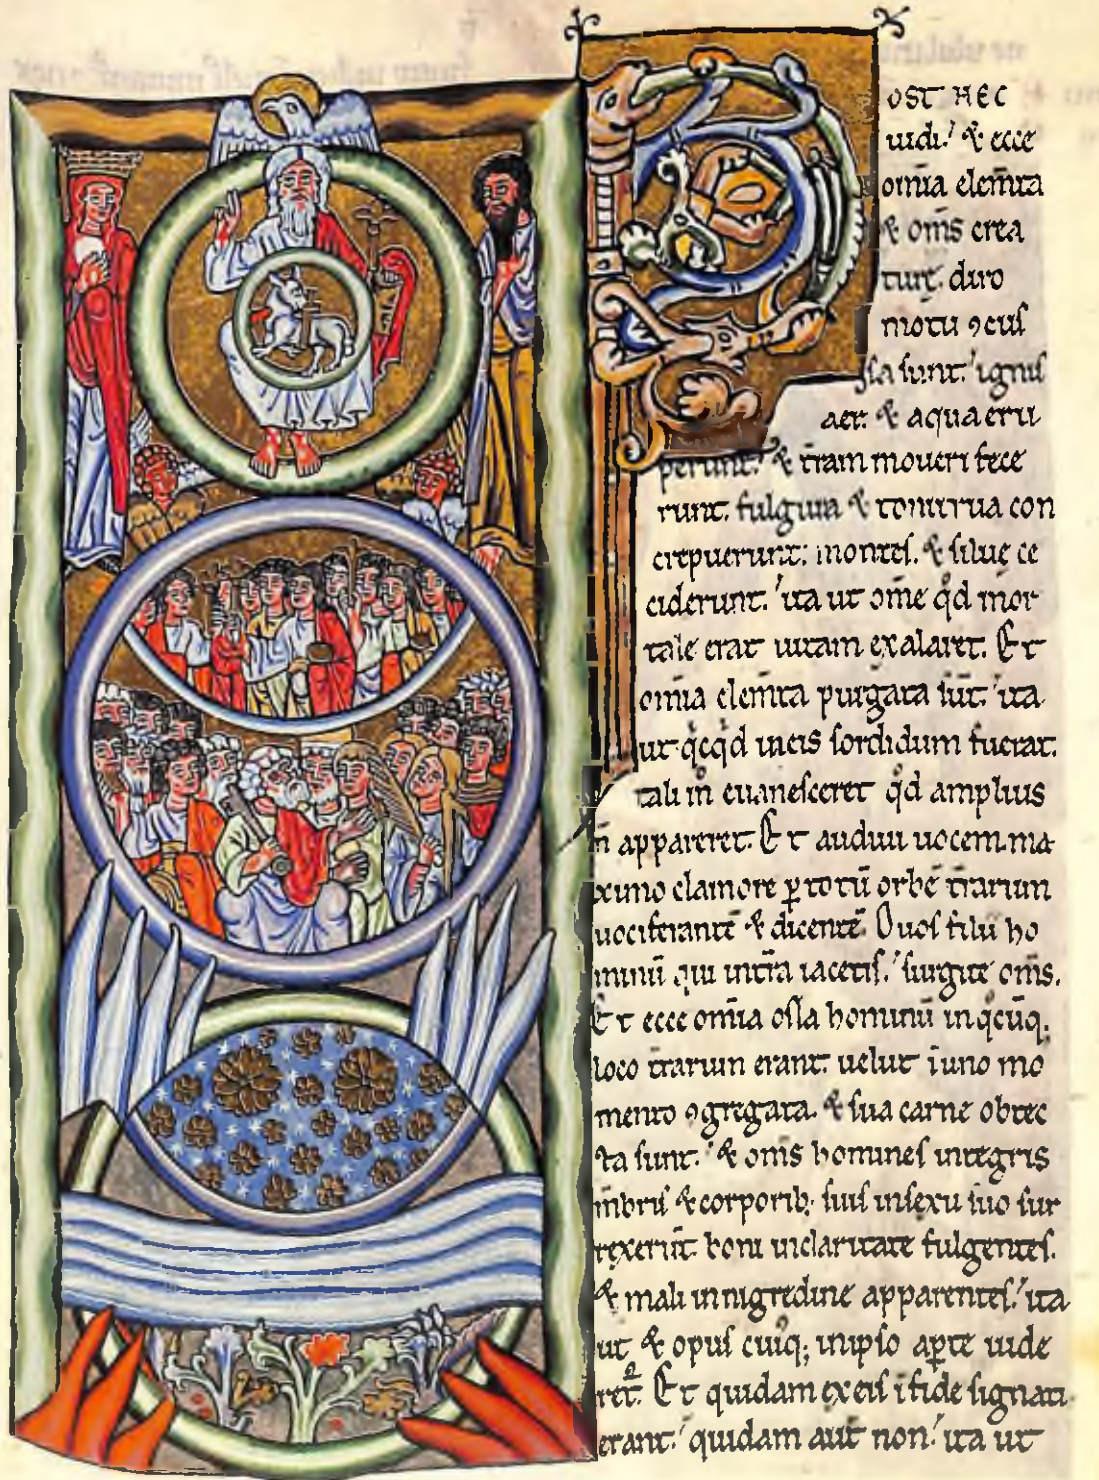 POST HEC
uidi. & ecce
om̅ia elem̅ta
& om̅s crea
turę. diro
motu ꝯcuſ
ſa ſunt. ignis
aer. & aqua eru
perunt. & t̅ram moueri fece
runt. fulgura & tonitrua con
crepuerunt. montes. & siluę ce
ciderunt. ita ut om̅e qd̅ mor
tale erat uitam exalaret. Et
om̅ia elem̅ta purgata su̅t. ita
ut qͥcqͥd in eis sordidum fuerat.
tali m̊ euanesceret qd̅ amplius
n̅ appareret. Et audiui uocem ma
ximo clamore ꝑ totu̅ orbe̅ t̅rarum
uociferante̅ & dicente̅. O uos filii ho
minu̅ qui in t̅ra iacetis. surgite om̅s.
Et ecce om̅ia ossa hominu̅ in qͦcu̅q;
loco t̅rarum erant. uelut i̅ uno mo
mento ꝯgregata. & sua carne obtec
ta sunt. & om̅s homines integris
m̅bris & corporib; suis in sexu suo sur
rexeru̅t. boni in claritate fulgentes.
& mali in nigredine apparentes. ita
ut & opus cuiq; in ipso aꝑte uide
ret᷑. Et quidam ex eis i̅ fide signati
erant. quidam aut̅ non. ita ut